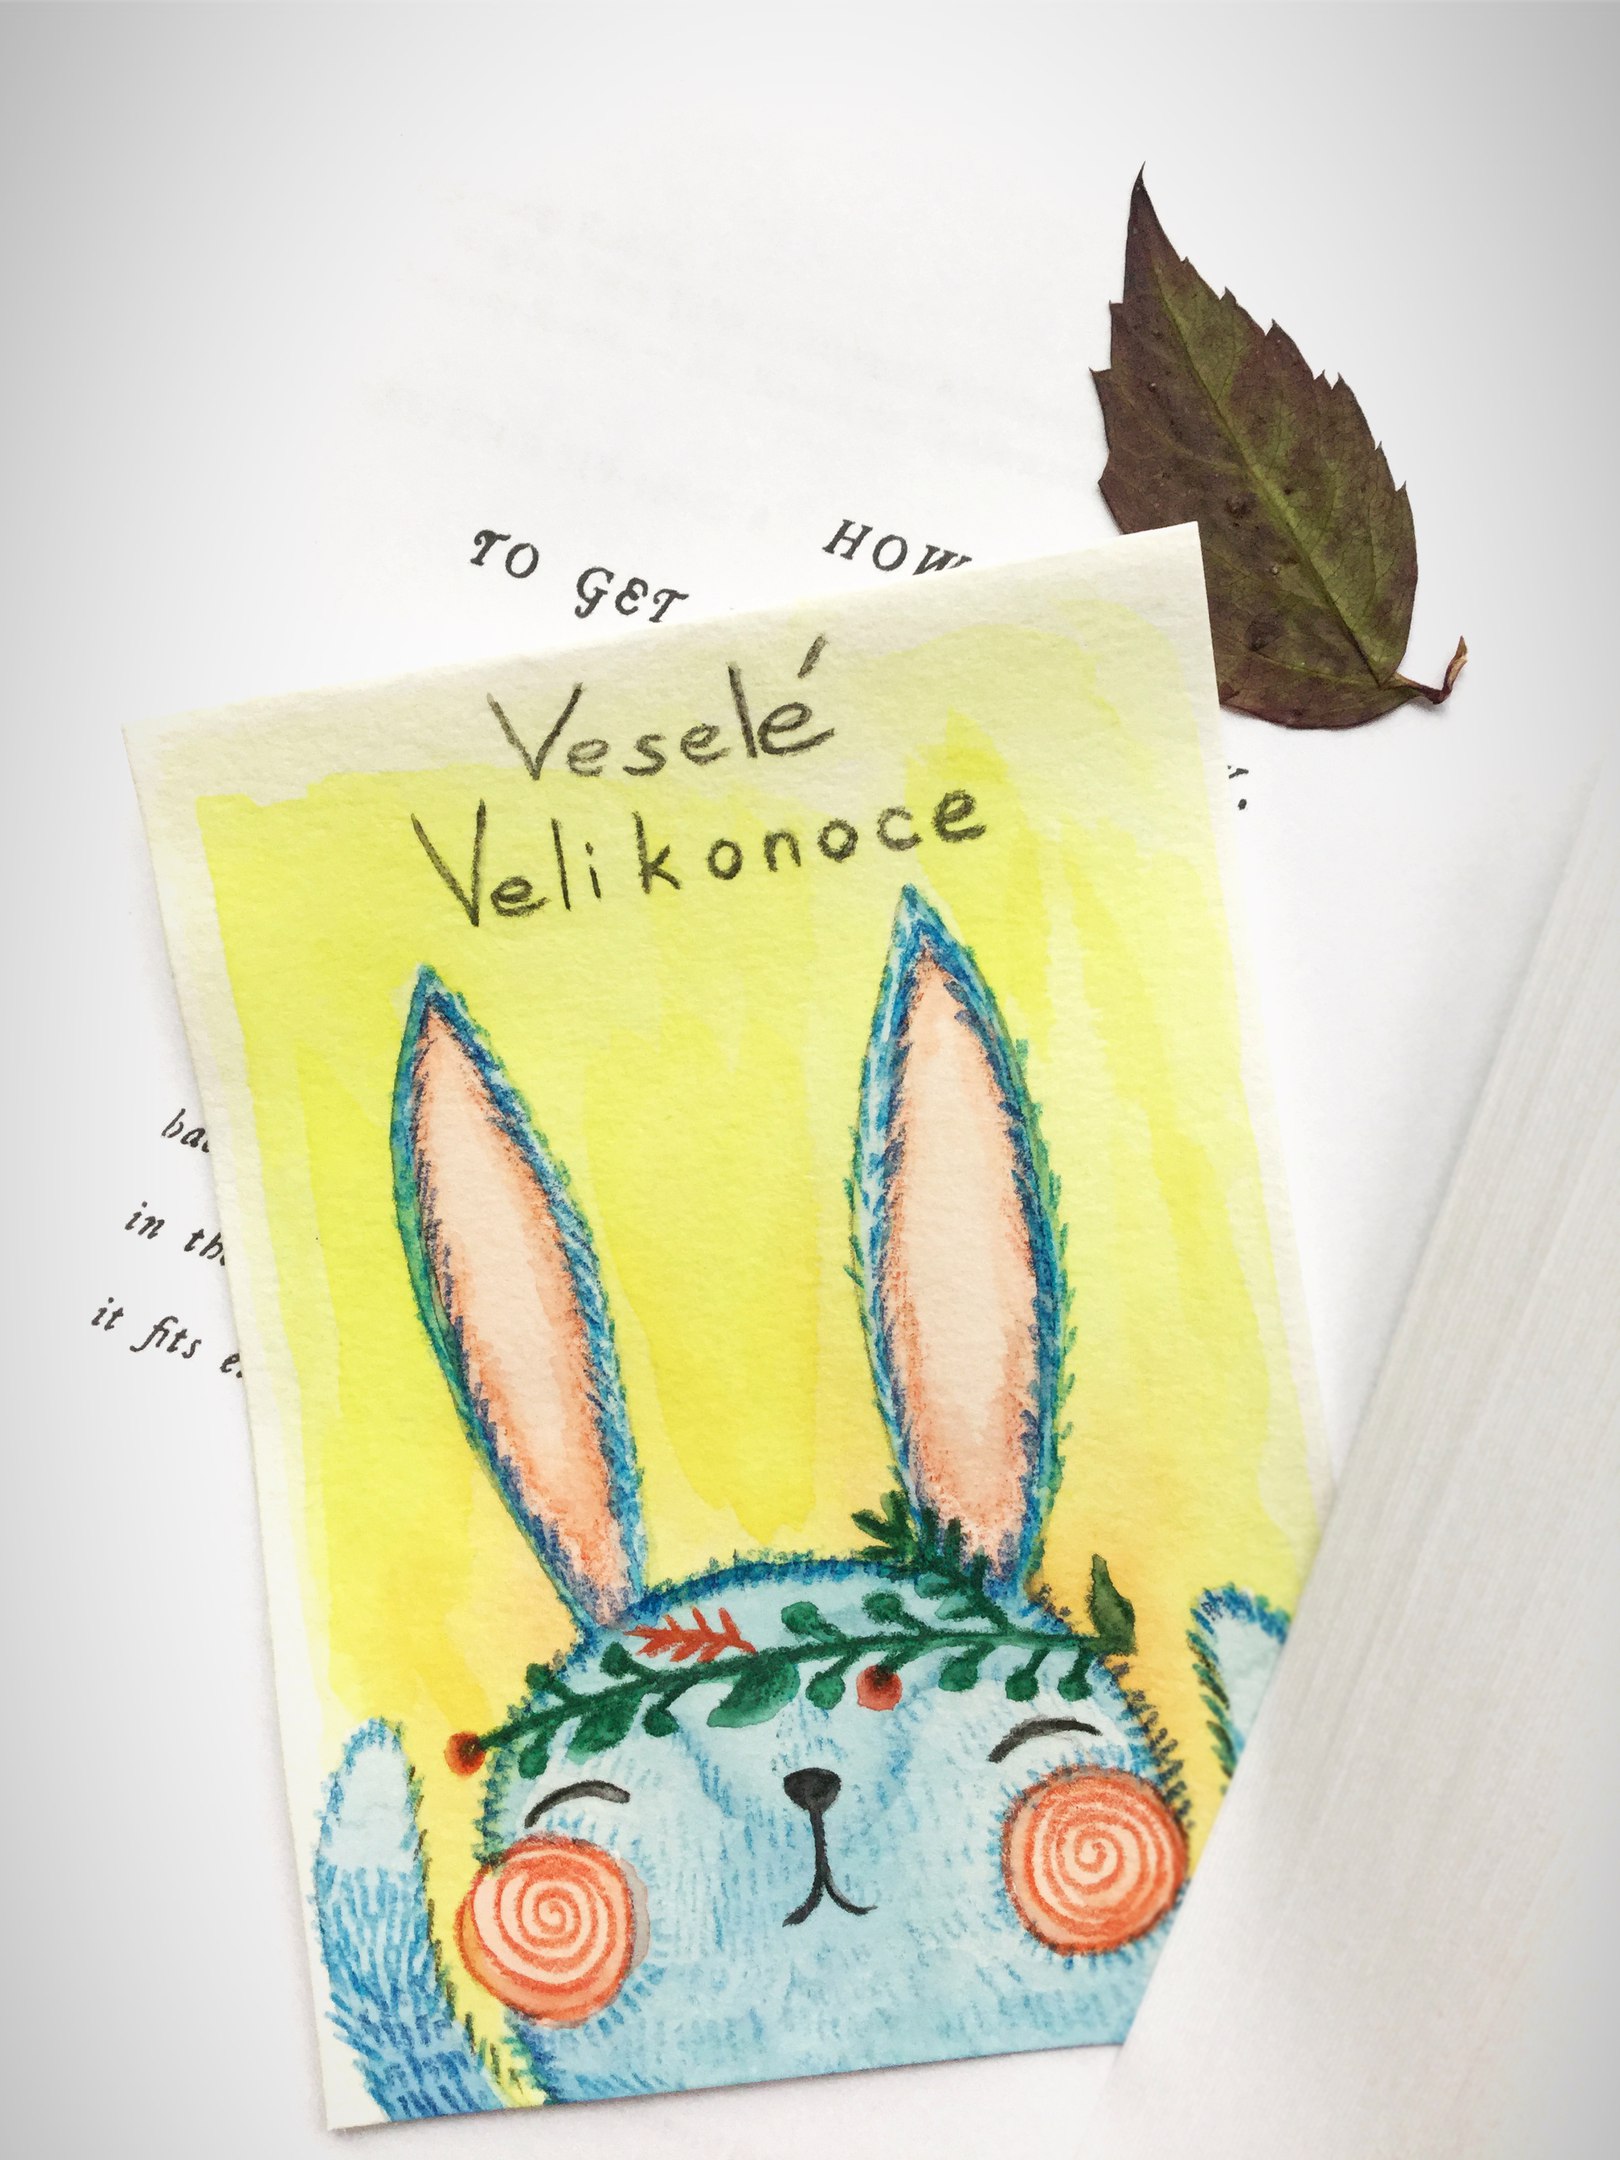 TO GET
HOW
Veselé
Velikonoce
in
it fits